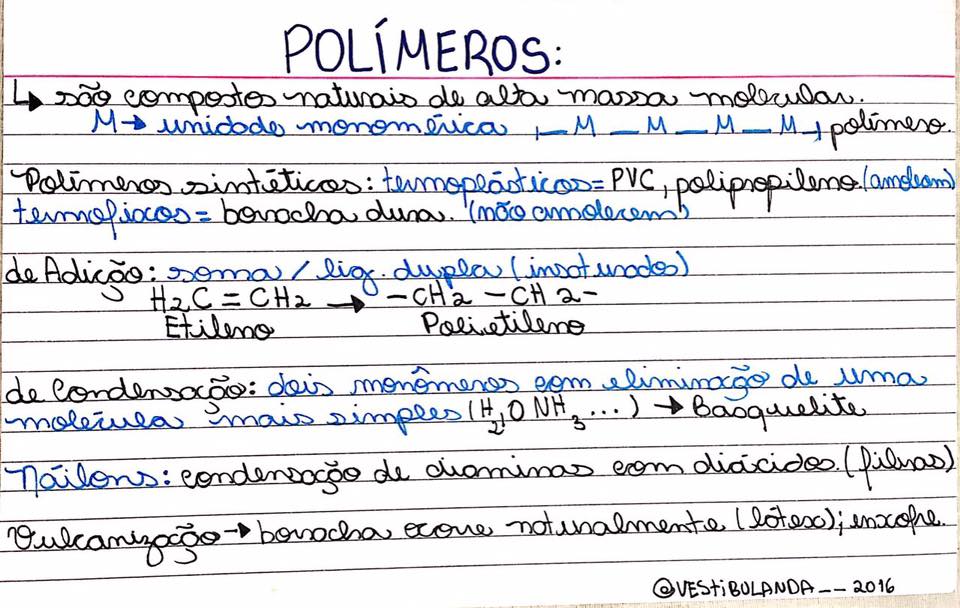 POLÍMEROS:
↳ são compostos naturais de alta massa molecular.
M → unidade monomérica, —M—M—M—M—, polímero.
Polímeros sintéticos: termoplásticos= PVC, polipropileno. (amolecem)
termofixos= borracha dura. (não amolecem)
de Adição: soma / lig. dupla (insaturados)
H2C = CH2 → -CH2 -CH2-
Etileno Polietileno
de Condensação: dois monômeros com eliminação de uma
molécula mais simples (H2O NH3...) → Basquelite
Náilons: condensação de diaminas com diácidos. (fibras)
Vulcanização → borracha ocorre naturalmente (látex); enxofre.
@VESTIBULANDA__2016